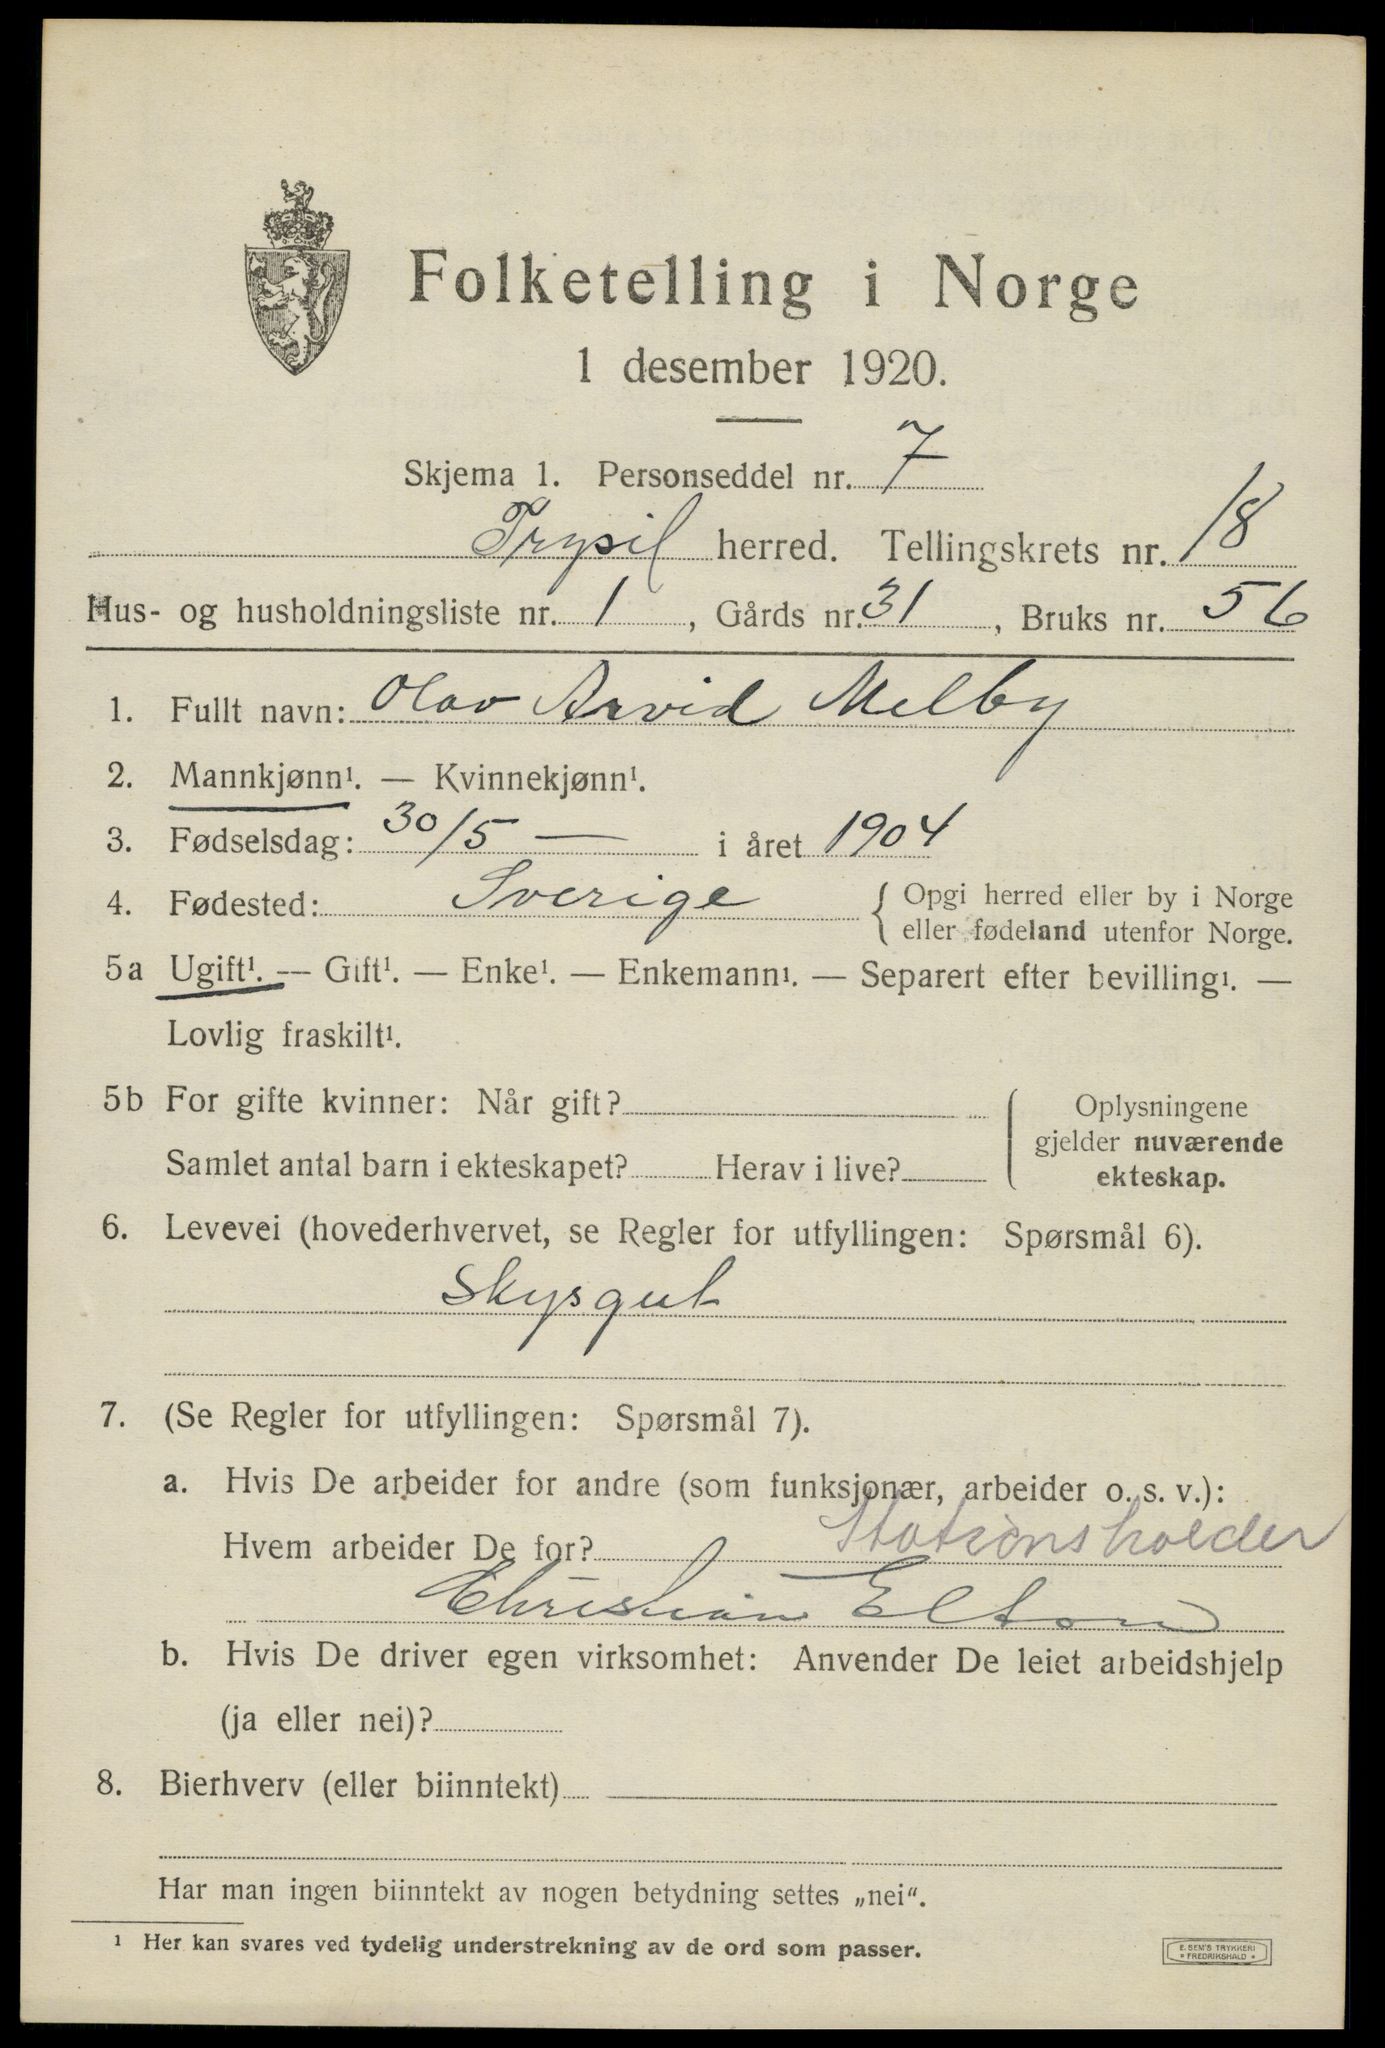 Folketelling i Norge
1 desember 1920.
Skjema 1. Personseddel nr. 7
Trysil herred. Tellingskrets nr. 18
Hus- og husholdningsliste nr. 1, Gårds nr. 31, Bruks nr. 56
1. Fullt navn: Olav Arvid Melby
2. Mannkjønn¹. — Kvinnekjønn¹.
3. Fødselsdag: 30/5 — i året 1904
4. Fødested: Sverige { Opgi herred eller by i Norge
eller fødeland utenfor Norge.
5a Ugift¹. — Gift¹. — Enke¹. — Enkemann¹. — Separert efter bevilling¹. —
Lovlig fraskilt¹.
5b For gifte kvinner: Når gift?
Samlet antal barn i ekteskapet? Herav i live?
Oplysningene
gjelder nuværende
ekteskap.
6. Levevei (hovederhvervet, se Regler for utfyllingen: Spørsmål 6).
Skysgut
7. (Se Regler for utfyllingen: Spørsmål 7).
a. Hvis De arbeider for andre (som funksjonær, arbeider o. s. v.):
Hvem arbeider De for? Stationsholder
Christian Elton
b. Hvis De driver egen virksomhet: Anvender De leiet arbeidshjelp
(ja eller nei)?
8. Bierhverv (eller biinntekt) —
Har man ingen biinntekt av nogen betydning settes „nei“.
¹ Her kan svares ved tydelig understrekning av de ord som passer.
E. SEM'S TRYKKERI
* FREDRIKSHALD *